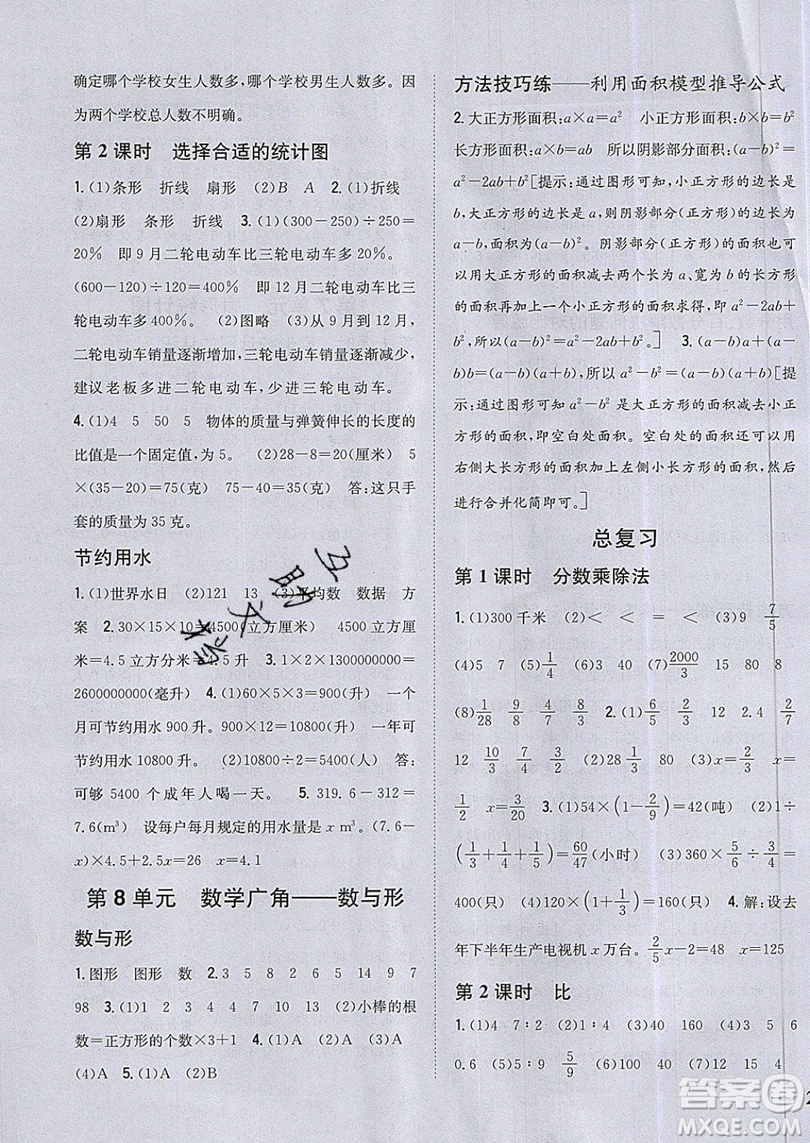 确定哪个学校女生人数多,哪个学校男生人数多。因
为两个学校总人数不明确。
第2课时 选择合适的统计图
1.(1)条形 折线 扇形 (2)B A 2.(1)折线
(2)扇形 条形 折线 3.(1)(300-250)÷250=
20% 即9月二轮电动车比三轮电动车多20%。
(600-120)÷120=400% 即12月二轮电动车比三
轮电动车多400%。 (2)图略 (3)从9月到12月,
二轮电动车销量逐渐增加,三轮电动车销量逐渐减少,
建议老板多进二轮电动车,少进三轮电动车。
4.(1)4 5 50 5 物体的质量与弹簧伸长的长度的
比值是一个固定值,为5。 (2)28-8=20(厘米) 5
×(20-13)=35(克) 7×5=35(克) 答:这只手
套的质量为35克。
节约用水
1.(1)世界水日 (2)121 13 (3)平均数 数据 方
案 2.30×15×10=4500(立方厘米) 4500立方厘
米=4.5立方分米=4.5升 3.1×2×1300000000=
2600000000(毫升) 4.(1)60×5×3=900(升) 一个
月可节约用水900升。900×12=10800(升) 一年可
节约用水10800升。 (2)10800÷2=5400(人) 答:
可够5400个成年人喝一天。 5.319.6-312=
7.6(m³) 设每户每月规定的用水量是x m³。(7.6-
x)×4.5+2.5x=26 x=4.1
第8单元 数学广角——数与形
数与形
1.图形 图形 数 2.3 5 8 2 5 8 14 9 7
98 3.(1)1 2 3 4 7 10 13 (2)小棒的根
数=正方形的个数×3+1 4.(1)A (2)C (3)C
(4)A 5.(1)A (2)B
方法技巧练——利用面积模型推导公式
2.大正方形面积:a×a=a² 小正方形面积:b×b=b²
长方形面积:a×b=ab 所以阴影部分面积:(a-b)²=
a²-2ab+b²[提示:通过图形可知,小正方形的边长是
b,大正方形的边长是a,则阴影部分(正方形)的边长为
(a-b),面积为(a-b)²。阴影部分(正方形)的面积可
以用大正方形的面积减去两个长为a,宽为b的长方形
的面积再加上一个小正方形的面积求得,即a²-2ab+
b²,所以(a-b)²=a²-2ab+b²。] (a-b)a+(a-
b)b=a²-ab+ab-b²,所以a²-b²=(a-b)(a+b)[提
示:通过图形可知,a²-b²是大正方形的面积减去小正
方形的面积,即空白处的面积。空白处的面积可以用
右侧大长方形的面积加上左下侧小长方形的面积,然后
进行合并化简即可。]
总复习
第1课时 分数乘除法
1.(1)300千米 (2)< < = < (3)9 7/5
(4)5 7 (5)1/4 (6)3 40 (7)2000/3 15
(8)1/28 9/8 4/9 8/3 2.(1)6/5 1/3 12 2.4
12 10/3 3/4 3/2 (2)29 28 (3)x=90 x=
1/2 x=10 3.(1)54×(1-2/9)=42(吨) (2)1÷
(1/3+1/4+1/5)=60/47(小时) (3)360÷(1-1/10)=
400(只) (4)360÷[270×(1+1/3)]=1 4.解:设去
年下半年生产电视机x万台。2/5x-2=48 x=125
第2课时 比
1.(1)4 7∶2 (2)1∶4 (3)40 160 (4)3 5 6
0.6 (5)5∶9 5/9 (6)100 40 (7)64 (8)6
互助文档
答案圈
MXQE.COM
2